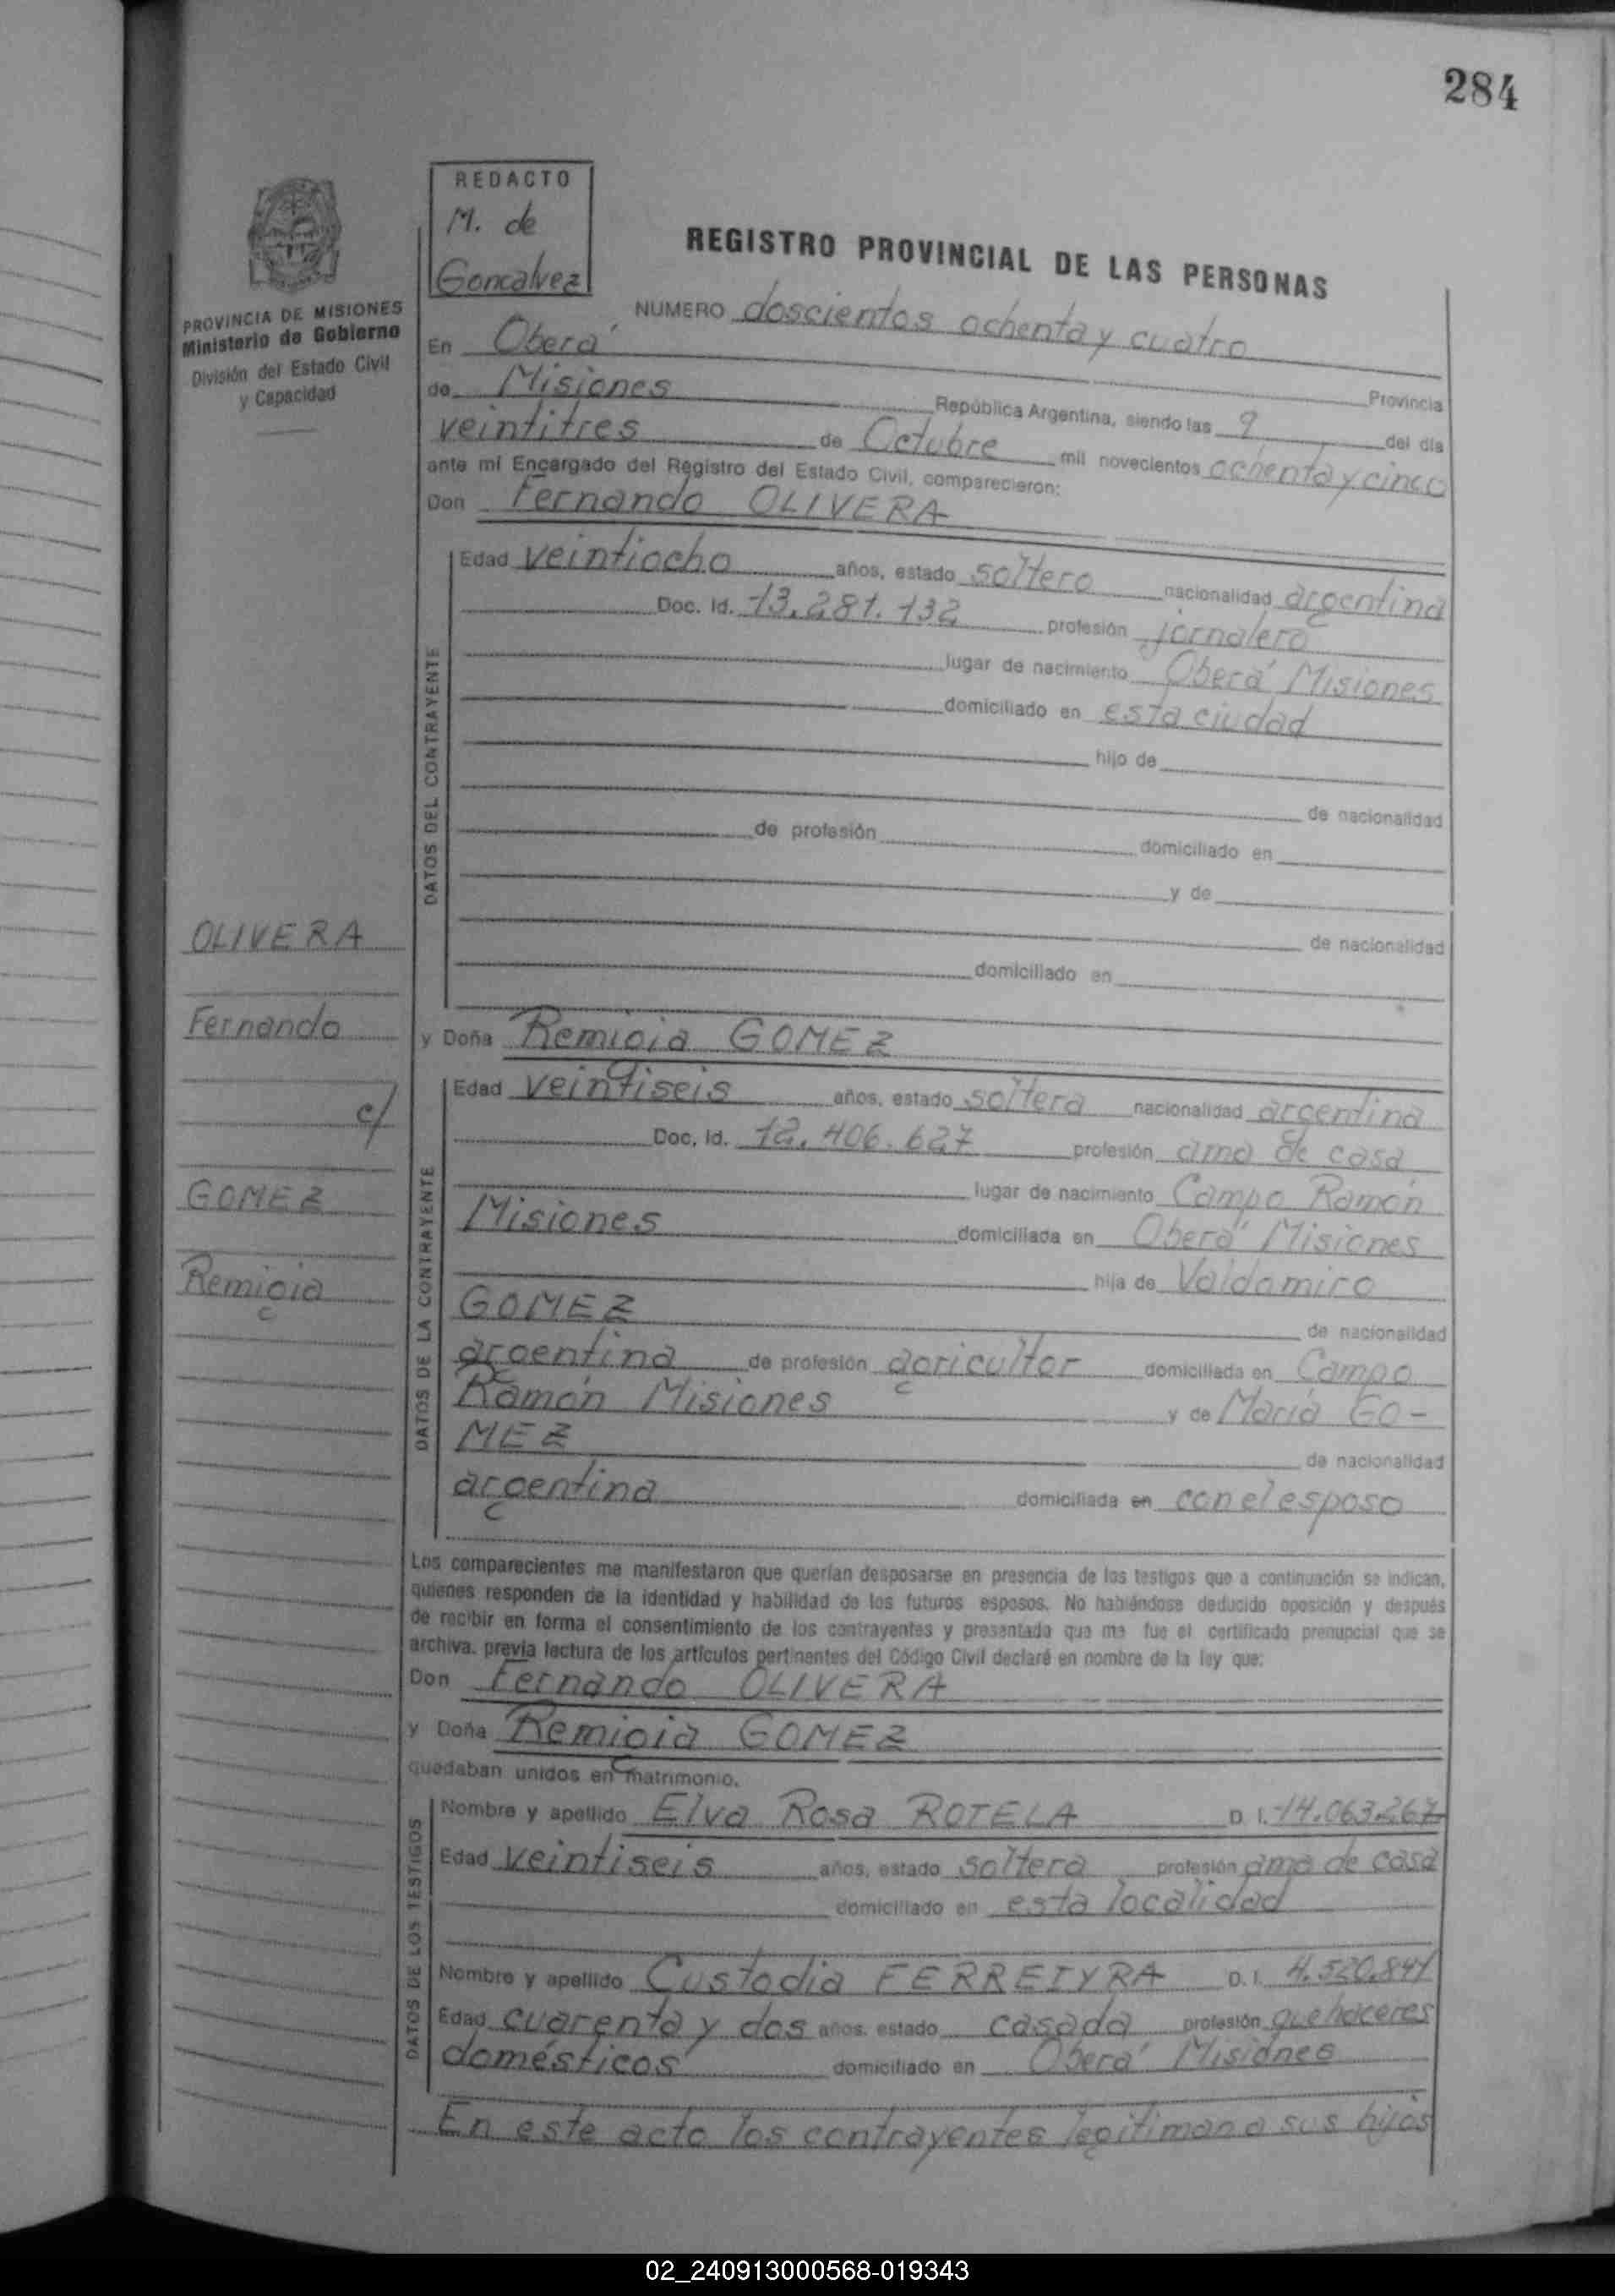 284
REDACTO
M. de
Goncalvez
PROVINCIA DE MISIONES
Ministerio de Gobierno
División del Estado Civil
y Capacidad
REGISTRO PROVINCIAL DE LAS PERSONAS
NUMERO doscientos ochenta y cuatro
En Oberá Provincia
de Misiones República Argentina, siendo las 9 del día
veintitres de Octubre mil novecientos ochenta y cinco
ante mí Encargado del Registro del Estado Civil, comparecieron:
Don Fernando OLIVERA
DATOS DEL CONTRAYENTE
Edad veintiocho años, estado soltero nacionalidad argentina
Doc. Id. 13.281.132 profesión jornalero
lugar de nacimiento Oberá Misiones
domiciliado en esta ciudad
hijo de
de nacionalidad
de profesión domiciliado en
y de
de nacionalidad
domiciliado en
OLIVERA
Fernando
c/
GOMEZ
Remigia
y Doña Remigia GOMEZ
DATOS DE LA CONTRAYENTE
Edad veintiseis años, estado soltera nacionalidad argentina
Doc. Id. 12.406.627 profesión ama de casa
lugar de nacimiento Campo Ramón
Misiones domiciliada en Oberá Misiones
hija de Valdamiro
GOMEZ de nacionalidad
argentina de profesión agricultor domiciliada en Campo
Ramón Misiones y de María GO-
MEZ de nacionalidad
argentina domiciliada en con el esposo
Los comparecientes me manifestaron que querían desposarse en presencia de los testigos que a continuación se indican,
quienes responden de la identidad y habilidad de los futuros esposos. No habiéndose deducido oposición y después
de recibir en forma el consentimiento de los contrayentes y presentado que me fue el certificado prenupcial que se
archiva. previa lectura de los artículos pertinentes del Código Civil declaré en nombre de la ley que:
Don Fernando OLIVERA
y Doña Remigia GOMEZ
quedaban unidos en matrimonio.
DATOS DE LOS TESTIGOS
Nombre y apellido Elva Rosa ROTELA D. I. 14.063.267
Edad veintiseis años, estado soltera profesión ama de casa
domiciliado en esta localidad
Nombre y apellido Custodia FERREIYRA D. I. 4.520.841
Edad cuarenta y dos años. estado casada profesión quehaceres
domésticos domiciliado en Oberá Misiones
En este acto los contrayentes legitiman a sus hijos
02_240913000568-019343